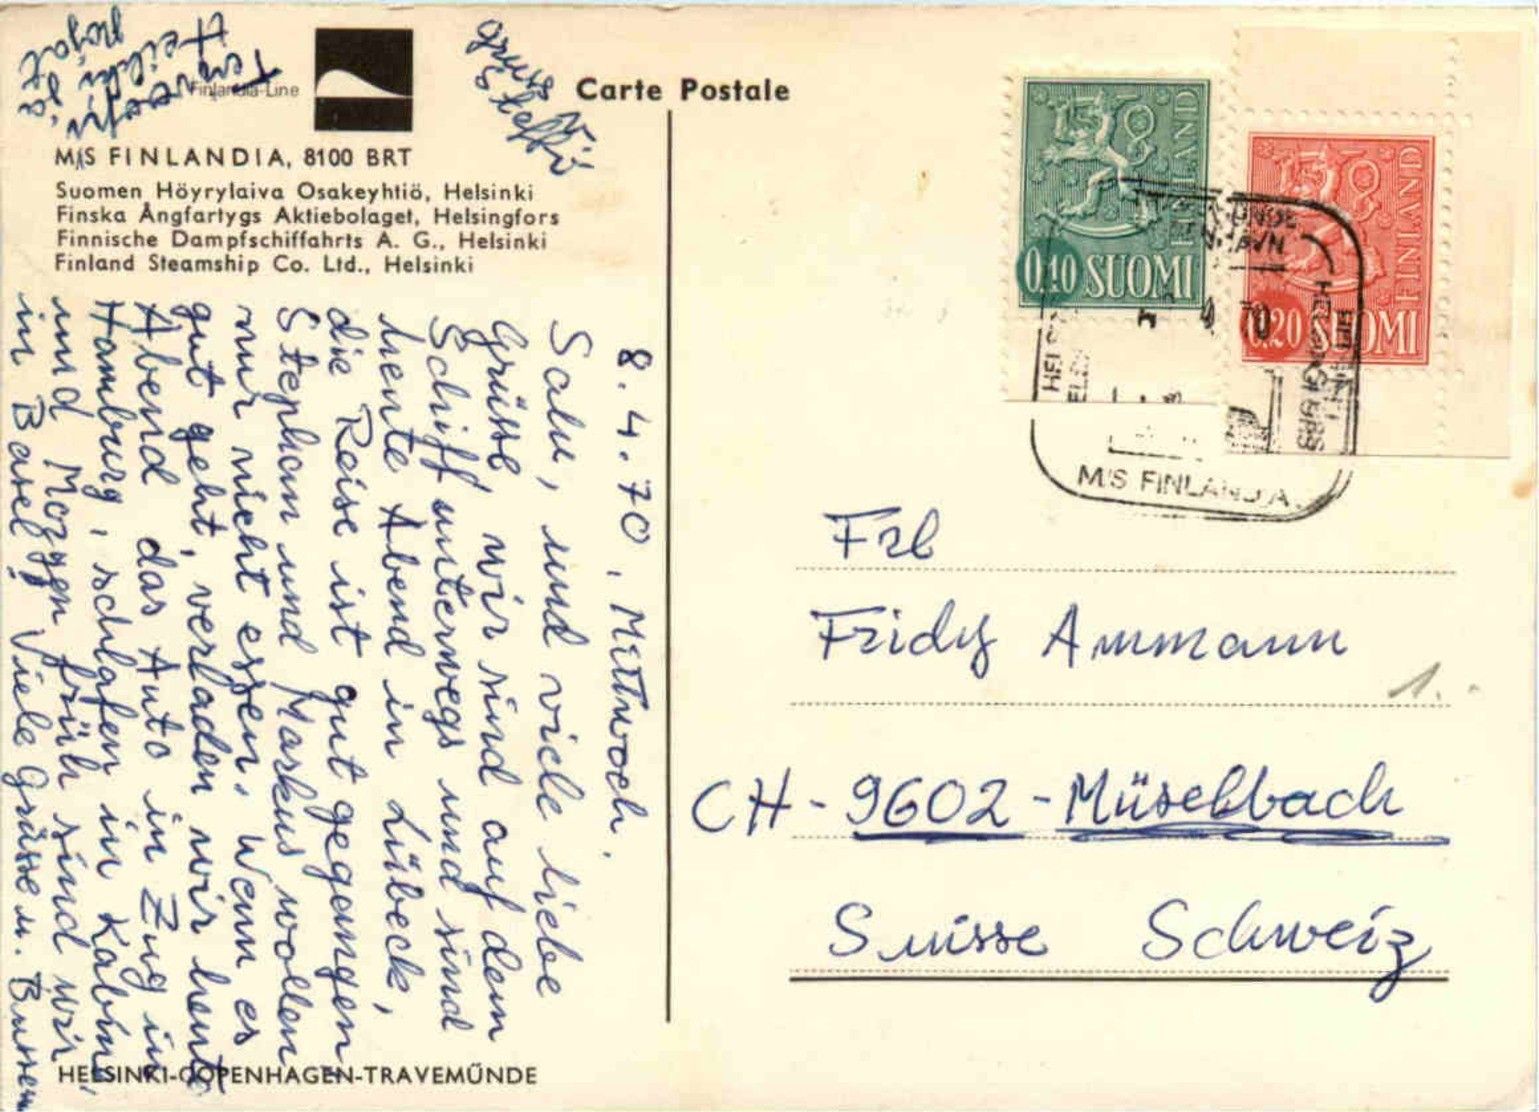 Finlandia-Line
M/S FINLANDIA, 8100 BRT
Suomen Höyrylaiva Osakeyhtiö, Helsinki
Finska Ångfartygs Aktiebolaget, Helsingfors
Finnische Dampfschiffahrts A. G., Helsinki
Finland Steamship Co. Ltd., Helsinki
Carte Postale
8.4.70, Mittwoch.
Salu, und viele liebe
Grüsse, wir sind auf dem
Schiff unterwegs und sind
heute Abend in Lübeck,
die Reise ist gut gegangen
Stephan und Markus wollen
nur nicht essen. Wenn es
gut geht, verladen wir heute
Abend das Auto in Zug in
Hamburg, schlafen in Kabine,
und Morgen früh sind wir
in Basel. Viele Grüsse u. Bussen
Heikki ja
Gruss v.
Steffi
HELSINKI-COPENHAGEN-TRAVEMÜNDE
FINLAND
0.10 SUOMI
FINLAND
0.20 SUOMI
M/S FINLANDIA
Frl
Fridy Ammann
1.-
CH-9602-Müselbach
Suisse Schweiz